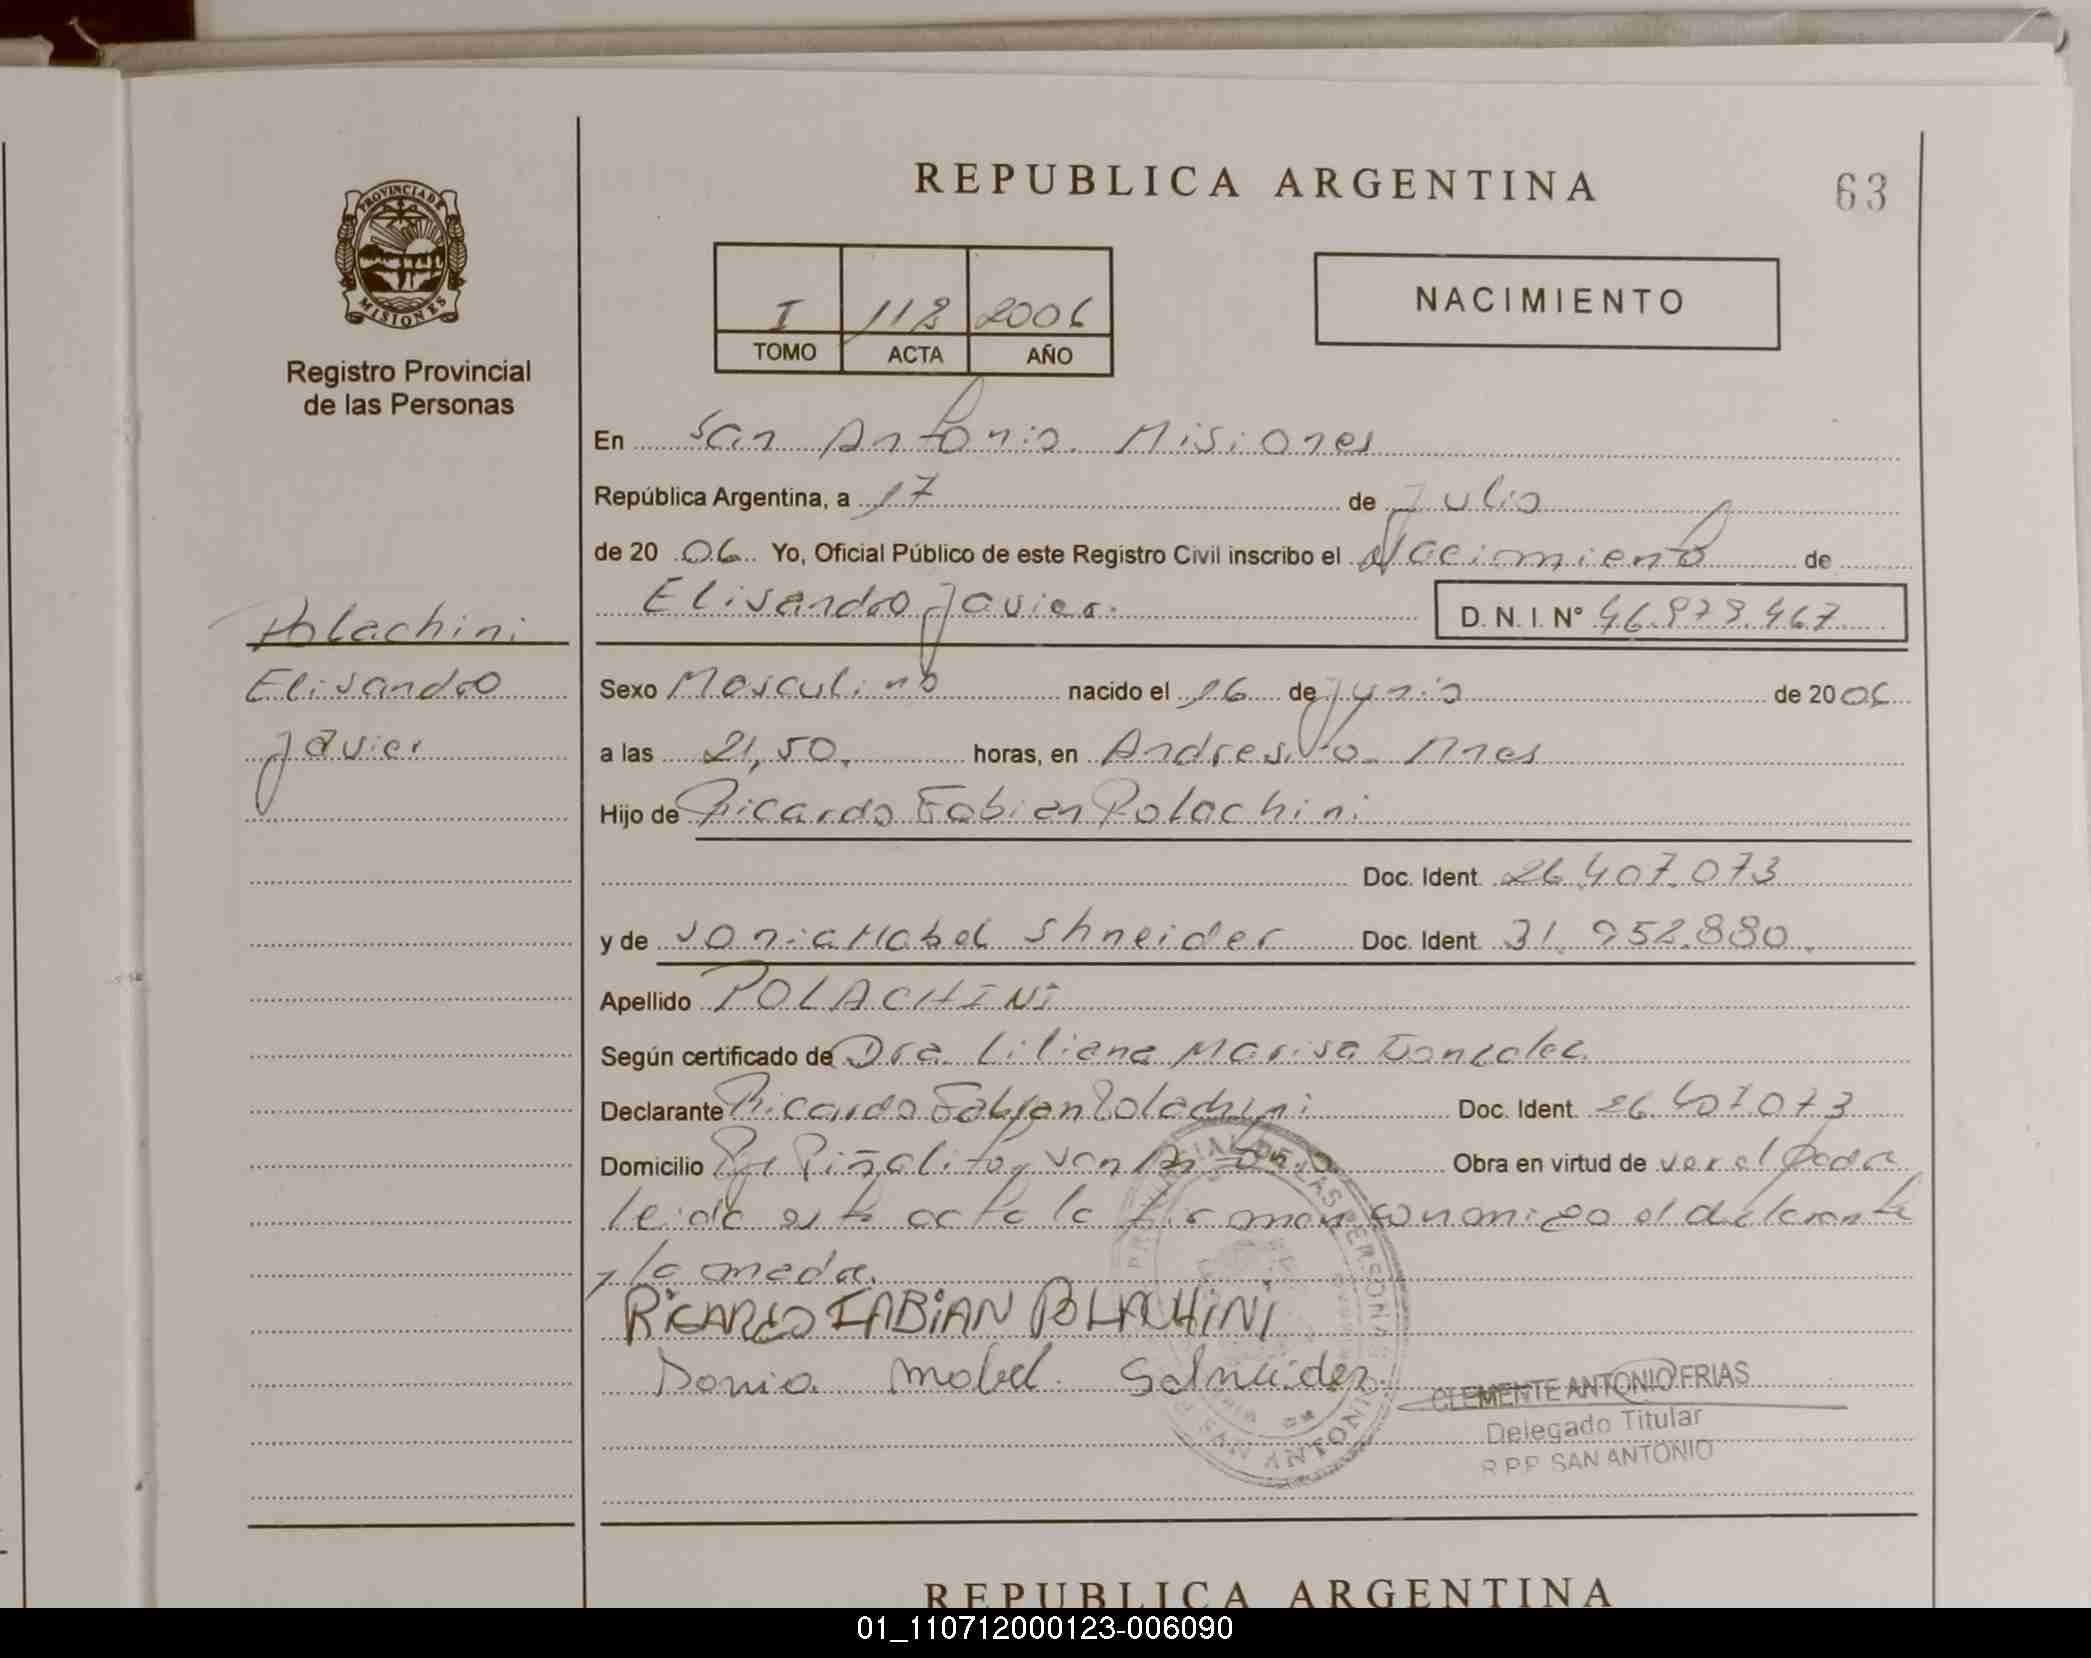 REPUBLICA ARGENTINA
63
PROVINCIA DE MISIONES
Registro Provincial
de las Personas
I 118 2006
TOMO ACTA AÑO
NACIMIENTO
En San Antonio. Misiones
República Argentina, a 17 de Julio
de 20 06 Yo, Oficial Público de este Registro Civil inscribo el Nacimiento de
Elisandro Javier. D. N. I. Nº
Polachini
Elisandro
Javier
Sexo Masculino nacido el 16 de Junio de 20 06
a las 21,50. horas, en Andresito. Mnes
Hijo de Ricardo Fabian Polachini
Doc. Ident. 26.407.073
y de Sonia Mabel Shneider Doc. Ident. 31.952.880.
Apellido POLACHINI
Según certificado de Dra. Liliana Marisa Gonzalez
Declarante Ricardo Fabian Polachini Doc. Ident. 26.407.073
Domicilio Pje Piñalito, San Antonio Obra en virtud de ser el Padre
leida esta acta la firman conmigo el declarante
y la madre.
RICARDO FABIAN POLACHINI
Sonia Mabel Schneider
CLEMENTE ANTONIO FRIAS
Delegado Titular
R.P.P. SAN ANTONIO
REPUBLICA ARGENTINA
01_110712000123-006090